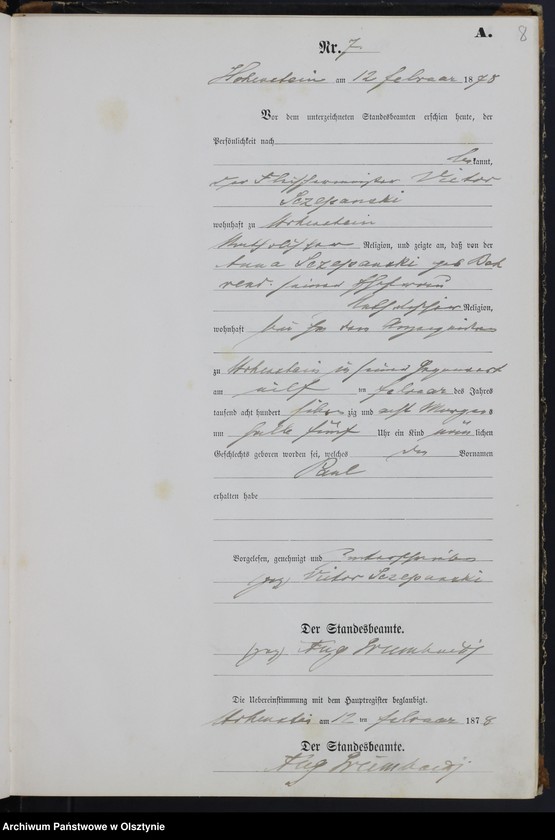 A.
8
Nr. 7
Hohenstein am 12 Februar 1878
Vor dem unterzeichneten Standesbeamten erschien heute, der
Persönlichkeit nach
bekannt,
der Fleischermeister Victor
Szczepanski
wohnhaft zu Hohenstein
Katholischer Religion, und zeigte an, daß von der
Anna Szczepanski geb
seiner Ehefrau
Katholischer Religion,
wohnhaft bei
zu Hohenstein in seiner Gegenwart
am eilf ten Februar des Jahres
tausend acht hundert siebenzig und acht Morgens
um halb fünf Uhr ein Kind männlichen
Geschlechts geboren worden sei, welches den Vornamen
Paul
erhalten habe
Vorgelesen, genehmigt und unterschrieben
(gez) Victor Szczepanski
Der Standesbeamte.
(gez)
Die Uebereinstimmung mit dem Hauptregister beglaubigt.
Hohenstein am 12 ten Februar 1878
Der Standesbeamte.
Archiwum Państwowe w Olsztynie